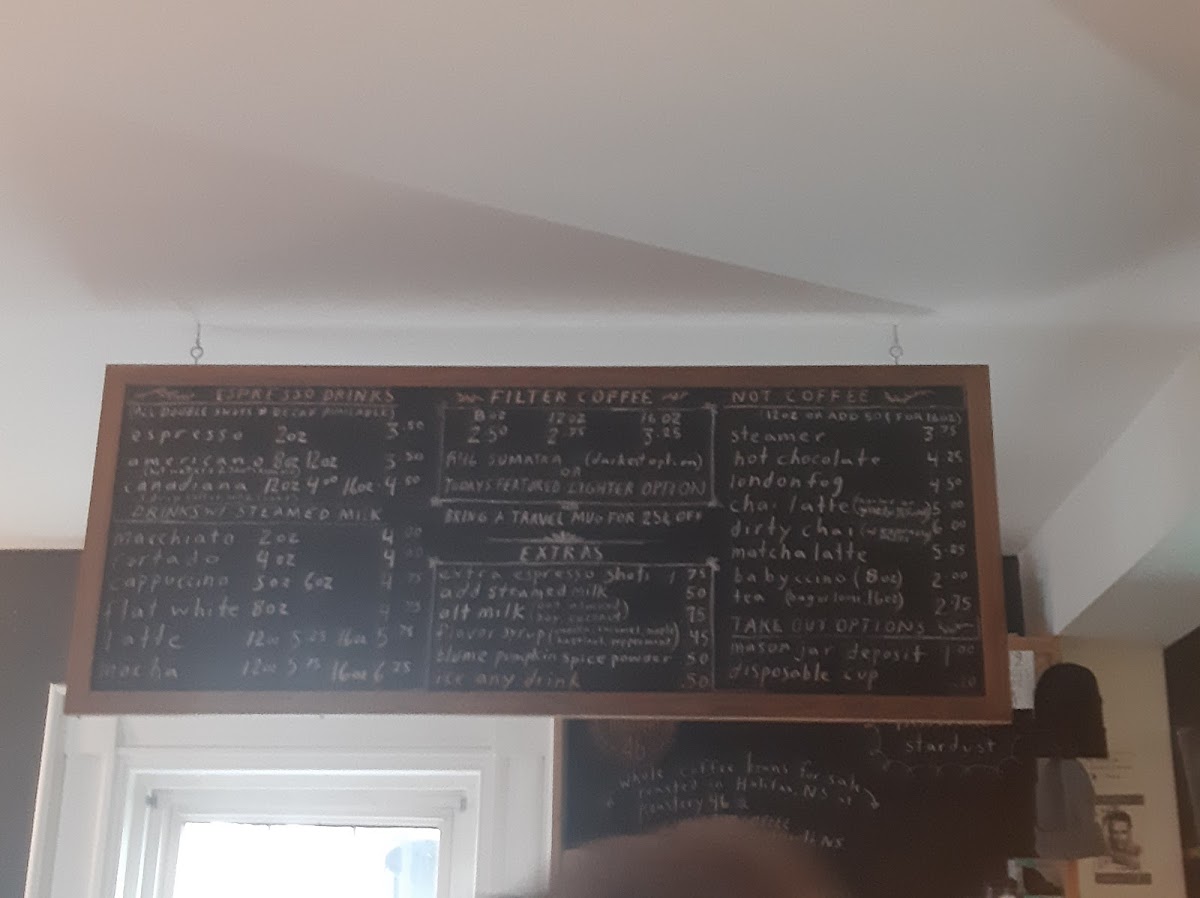 ESPRESSO DRINKS
(ALL DOUBLE SHOTS DECAF AVAILABLE)
espresso 2oz 3.50
americano 8oz 12oz 3.50
canadiana 12oz 4.00 16oz 4.50
DRINKS W/ STEAMED MILK
macchiato 2oz 4.00
cortado 4oz 4.00
cappuccino 5oz 6oz 4.75
flat white 8oz 4.75
latte 12oz 5.25 16oz 5.75
mocha 12oz 5.75 16oz 6.25
FILTER COFFEE
8oz 12oz 16oz
2.50 2.75 3.25
SUMATRA (darkest option)
OR
TODAYS FEATURED LIGHTER OPTION
BRING A TARVEL MUG FOR 25¢ OFF
EXTRAS
extra espresso shots 1.75
add steamed milk 50
alt milk (oat, almond, soy, coconut) 75
flavor syrup 45
blume pumpkin spice powder 50
ice any drink .50
NOT COFFEE
(12oz OR ADD 50¢ FOR 16oz)
steamer 3.75
hot chocolate 4.25
london fog 4.50
chai latte 5.00
dirty chai 6.00
matcha latte 5.25
babyccino (8oz) 2.00
tea (bag or loose, 16oz) 2.75
TAKE OUT OPTIONS
mason jar deposit 1.00
disposable cup
stardust
46
whole coffee beans for sale
roasted in Halifax, NS at
Roastery 46
NS